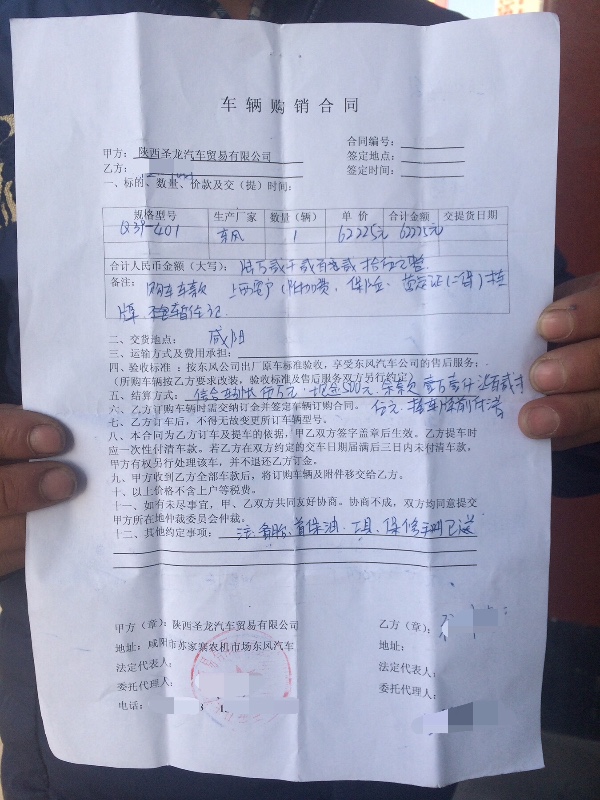 车辆购销合同
合同编号：
甲方：陕西圣龙汽车贸易有限公司
签定地点：
乙方：
签定时间：
一、标的、数量、价款及交（提）时间：
规格型号 生产厂家 数量（辆） 单价 合计金额 交提货日期
Q39-401 东风 1 62225元 62225元
合计人民币金额（大写）：陆万贰仟贰百贰拾伍元整
备注：购车车款 上西安户（附加费、保险、营运证（二保）挂
牌
二、交货地点：咸阳
三、运输方式及费用承担：
四、验收标准：按东风公司出厂原车标准验收，享受东风汽车公司的售后服务；
（所购车辆按乙方要求改装，验收标准及售后服务双方另行约定）
五、结算方式：现金500元
六、乙方订购车辆时需交纳订金并签定车辆订购合同。
七、乙方订车后，不得无故变更所订车辆型号。
八、本合同为乙方订车及提车的依据，甲乙双方签字盖章后生效。乙方提车时
应一次性付清车款。若乙方在双方约定的交车日期届满后三日内未付清车款，
甲方有权另行处理该车，并不退还乙方订金。
九、甲方收到乙方全部车款后，将订购车辆及附件移交给乙方。
十、以上价格不含上户等税费。
十一、如有未尽事宜，甲、乙双方共同友好协商。协商不成，双方均同意提交
甲方所在地仲裁委员会仲裁。
十二、其他约定事项：注：备胎、首保油、工具、保修手册已送
甲方（章）：陕西圣龙汽车贸易有限公司
乙方（章）：
地址：咸阳市苏家寨农机市场东风汽车
地址：
法定代表人：
法定代表人：
委托代理人：
委托代理人：
电话：